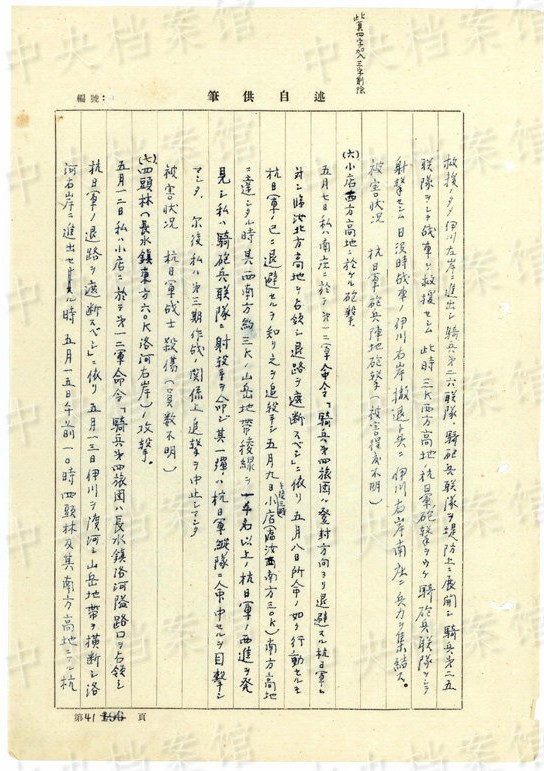 此頁四字加入三字削除
編號：
筆供自述
救援ノタメ伊川左岸ニ進出シ騎兵第二六聯隊、騎砲兵聯隊ヲ堤防上ニ展開シ騎兵第二五
聯隊ヲシテ戦車ヲ救援セシム 此時三K西方高地ノ抗日軍砲撃ヲウケ騎砲兵聯隊ヲシテ
射撃セシム 日没時戦車ノ伊川右岸撤退ト共ニ伊川右岸南庄ニ兵力ヲ集結ス。
被害状況 抗日軍砲兵陣地砲撃（被害程度不明）
(六)小店西方高地ニ於ケル砲撃。
五月七日私ハ南庄ニ於テ第一二軍命令「騎兵第四旅団ハ登封方向ヨリ退避スル抗日軍ニ
対シ臨汝北方高地ヲ占領シ退路ヲ遮断スベシ」ニ依リ五月八日所命ノ如ク行動セルモ
抗日軍ノ已ニ退避セルヲ知リ之ヲ追撃シ五月九日午後三時小店（臨汝西南方三〇K）南方高地
ニ達シタル時其西南方約三Kノ山岳地帯稜線ヲ一千名以上ノ抗日軍ノ西進ヲ発
見シ私ハ騎砲兵聯隊ニ射撃ヲ命ジ其一弾ハ抗日軍縦隊ニ命中セルヲ目撃シ
マシタ 尓後私ハ第三期作戦ノ関係上追撃ヲ中止シマシタ
被害状況 抗日軍戦士殺傷（員数不明）
(七)四頭林（長水鎮東方六〇K洛河右岸）ノ攻撃。
五月一二日私ハ小店ニ於テ第一二軍命令「騎兵第四旅団ハ長水鎮洛河隘路口ヲ占領シ
抗日軍ノ退路ヲ遮断スベシ」ニ依リ五月一三日伊川ヲ渡河シ山岳地帯ヲ横断シ洛
河右岸ニ進出セル時五月一五日午前一〇時四頭林及其南方高地ニアル抗
第41頁
中央档案馆